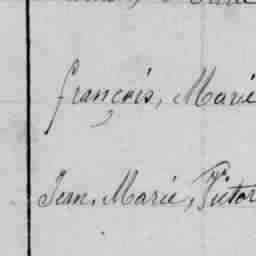 françois, Marie
Jean, Marie, Victor